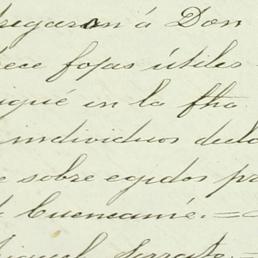 tregaron á Don
rece fojas útiles
iqué en la fha
individuos decla
e sobre egidos pr
de Cuencamé.=
Miguel Serrato.=